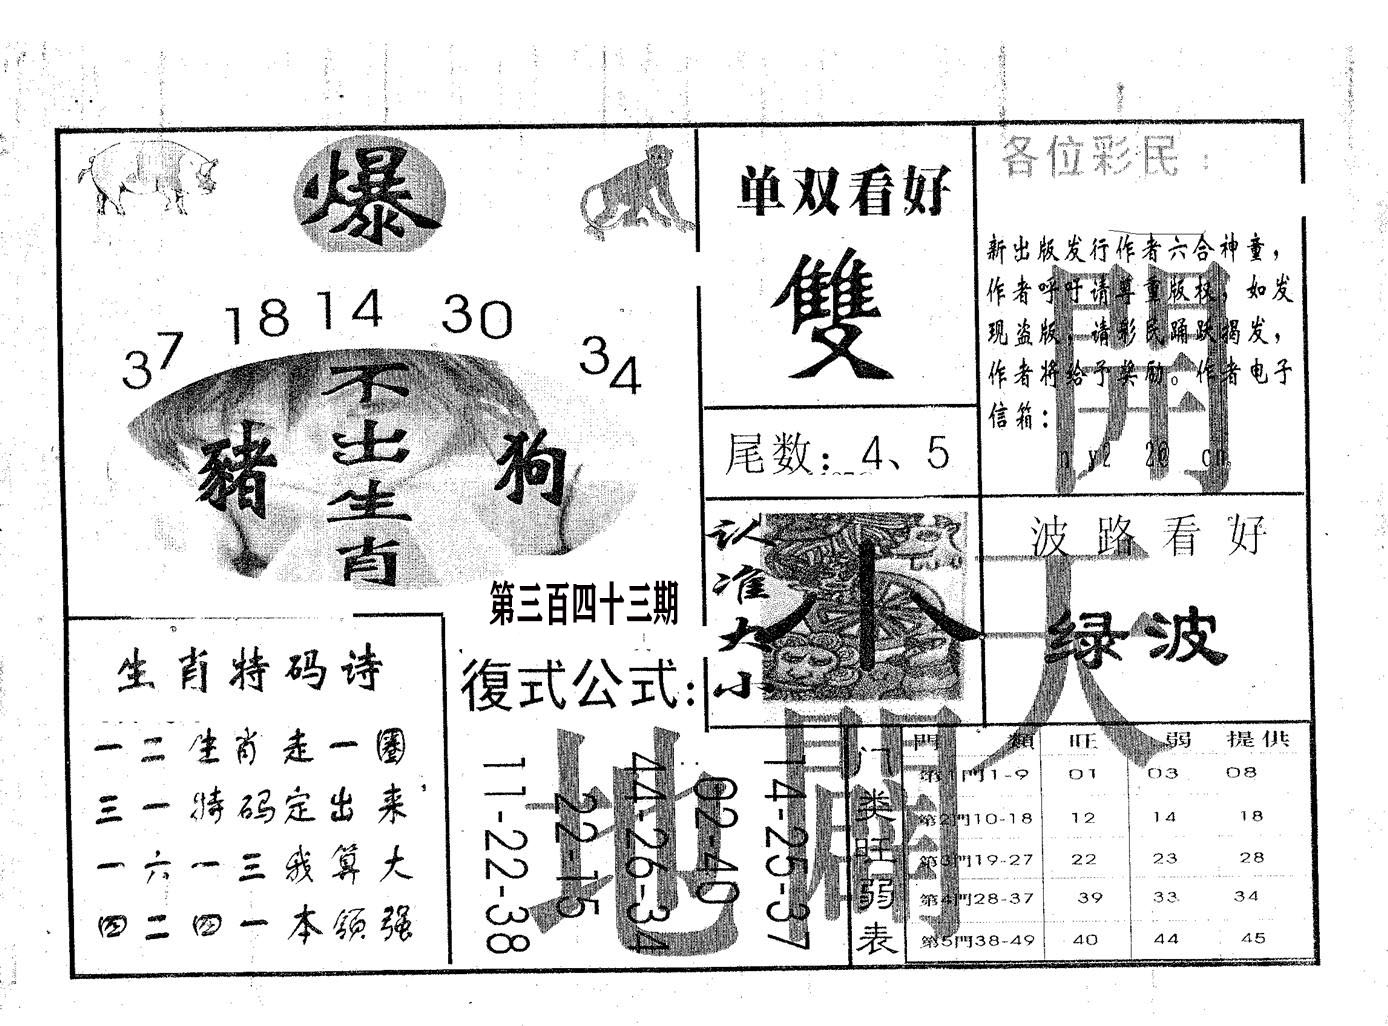 爆
37 18 14 30 34
不出生肖
豬
狗
第三百四十三期
单双看好
雙
尾数：4、5
各位彩民：
新出版发行作者六合神童，
作者呼吁请尊重版权，如发
现盗版，请彩民踊跃揭发，
作者将给予奖励。作者电子
信箱：
開天闢地
认准大小
小
波路看好
绿波
生肖特码诗
一二生肖走一圈
三一特码定出来
一六一三我算大
四二四一本领强
復式公式：
14-25-37
02-40
44-26-34
22-15
11-22-38
门类旺弱表
門類 旺 弱 提供
第1門1-9 01 03 08
第2門10-18 12 14 18
第3門19-27 22 23 28
第4門28-37 39 33 34
第5門38-49 40 44 45